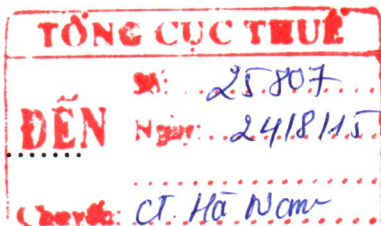 TỔNG CỤC THUẾ
ĐẾN
Số: 25807
Ngày: 24/8/15
Chuyển: CT. Hà Nam